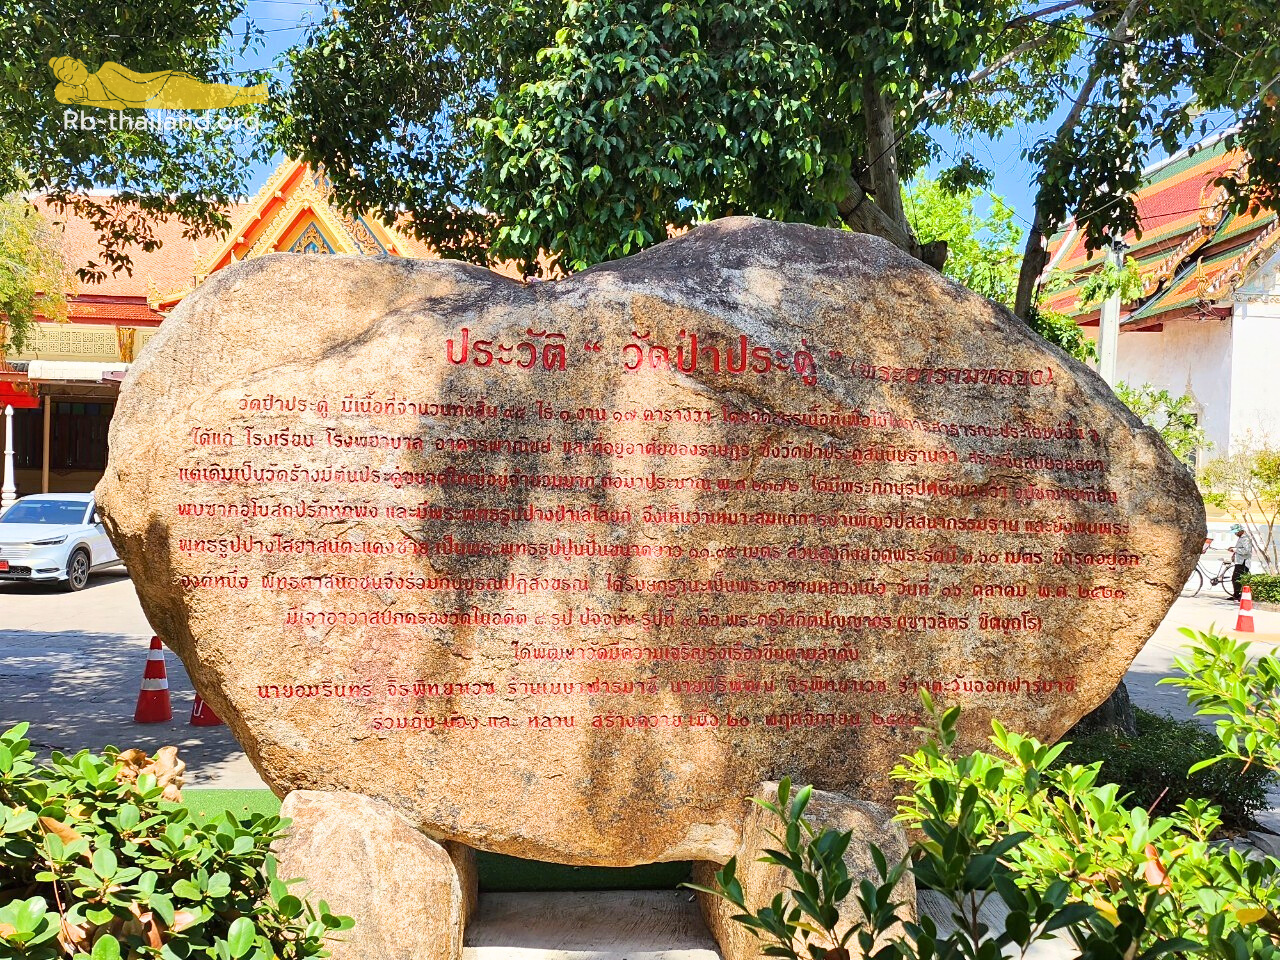 Rb-thailand.org
ประวัติ " วัดป่าประดู่ " (พระอารามหลวง)
วัดป่าประดู่ มีเนื้อที่จำนวนทั้งสิ้น ไร่ ๑ งาน ๑๗ ตารางวา
ได้แก่ โรงเรียน โรงพยาบาล อาคารพาณิชย์ และที่อยู่อาศัยของราษฎร ซึ่งวัดป่าประดู่สันนิษฐานว่า สร้างขึ้นสมัยอยุธยา
แต่เดิมเป็นวัดร้างมีต้นประดู่ขนาดใหญ่อยู่จำนวนมาก ต่อมาประมาณ พ.ศ.
พบซากอุโบสถปรักหักพัง และมีพระพุทธรูปปางป่าเลไลยก์ จึงเห็นว่าเหมาะสมแก่การบำเพ็ญวิปัสสนากรรมฐาน และยังพบพระ
พุทธรูปปางไสยาสน์ตะแคงซ้าย เป็นพระพุทธรูปปูนปั้นขนาดยาว ๑๑.๙๕ เมตร ส่วนสูงถึงยอดพระรัศมี ๓.๖๐ เมตร ชำรุดอยู่อีก
องค์หนึ่ง พุทธศาสนิกชนจึงร่วมกันบูรณปฏิสังขรณ์ ได้รับยกฐานะเป็นพระอารามหลวงเมื่อ วันที่ ๑๖ ตุลาคม พ.ศ. ๒๕๒๓
มีเจ้าอาวาสปกครองวัดในอดีต ๔ รูป ปัจจุบัน รูปที่ ๕ คือ
ได้พัฒนาวัดมีความเจริญรุ่งเรืองขึ้นตามลำดับ
นายอมรินทร์ จิรพิทยาเวช ร้านเมษาฟาร์มาซี จิรพิทยาเวช ร้านตะวันออกฟาร์มาซี
ร่วมกับ และ หลาน สร้างถวาย เมื่อ ๒๐ พฤศจิกายน